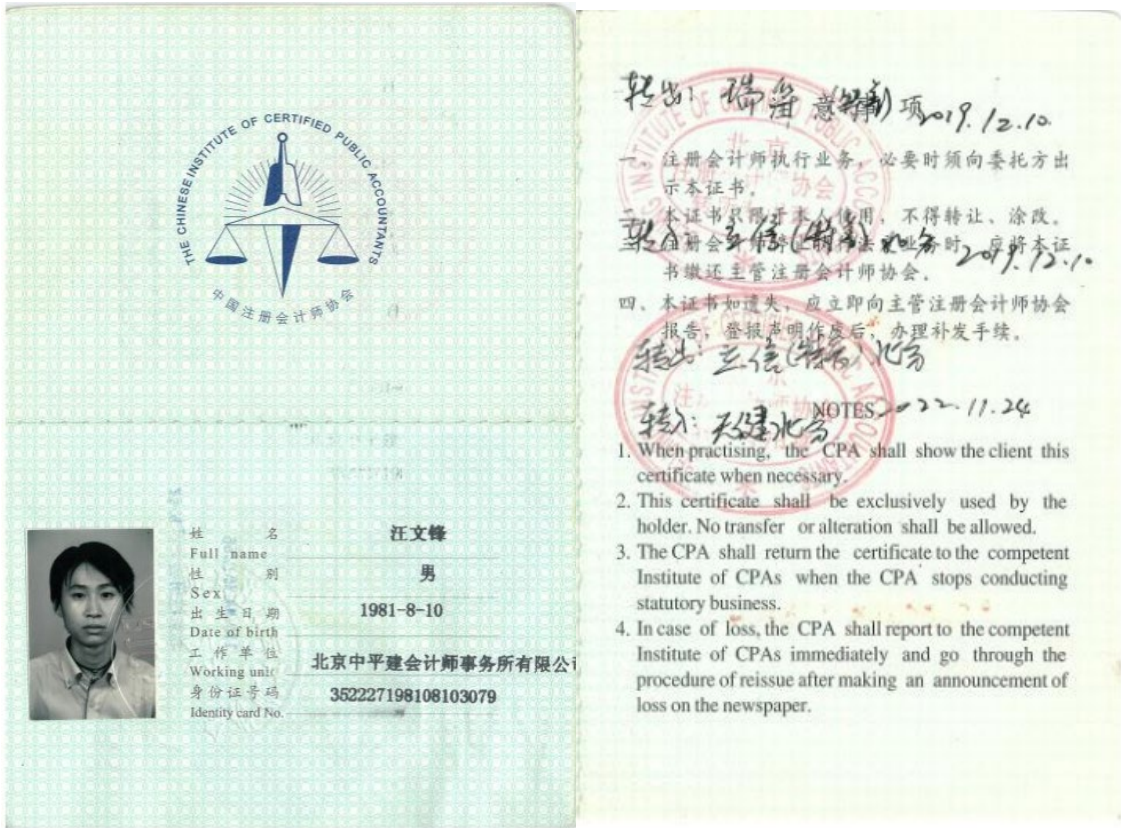 THE CHINESE INSTITUTE OF CERTIFIED PUBLIC ACCOUNTANTS
中国注册会计师协会
姓 名 汪文锋
Full name
性 别 男
Sex
出生日期 1981-8-10
Date of birth
工作单位 北京中平建会计师事务所有限公
Working unit
身份证号码 352227198108103079
Identity card No.
转出: 瑞华 意 项 2019.12.10
一、注册会计师执行业务,必要时须向委托方出
示本证书。
二、本证书只限于本人使用,不得转让、涂改。
转入: 立信 2019.12.10
书缴还主管注册会计师协会。
四、本证书如遗失,应立即向主管注册会计师协会
报告,登报声明作废后,办理补发手续。
转出: 立信(特普)北分
NOTES 2022.11.24
转入: 天健北分
1. When practising, the CPA shall show the client this
certificate when necessary.
2. This certificate shall be exclusively used by the
holder. No transfer or alteration shall be allowed.
3. The CPA shall return the certificate to the competent
Institute of CPAs when the CPA stops conducting
statutory business.
4. In case of loss, the CPA shall report to the competent
Institute of CPAs immediately and go through the
procedure of reissue after making an announcement of
loss on the newspaper.